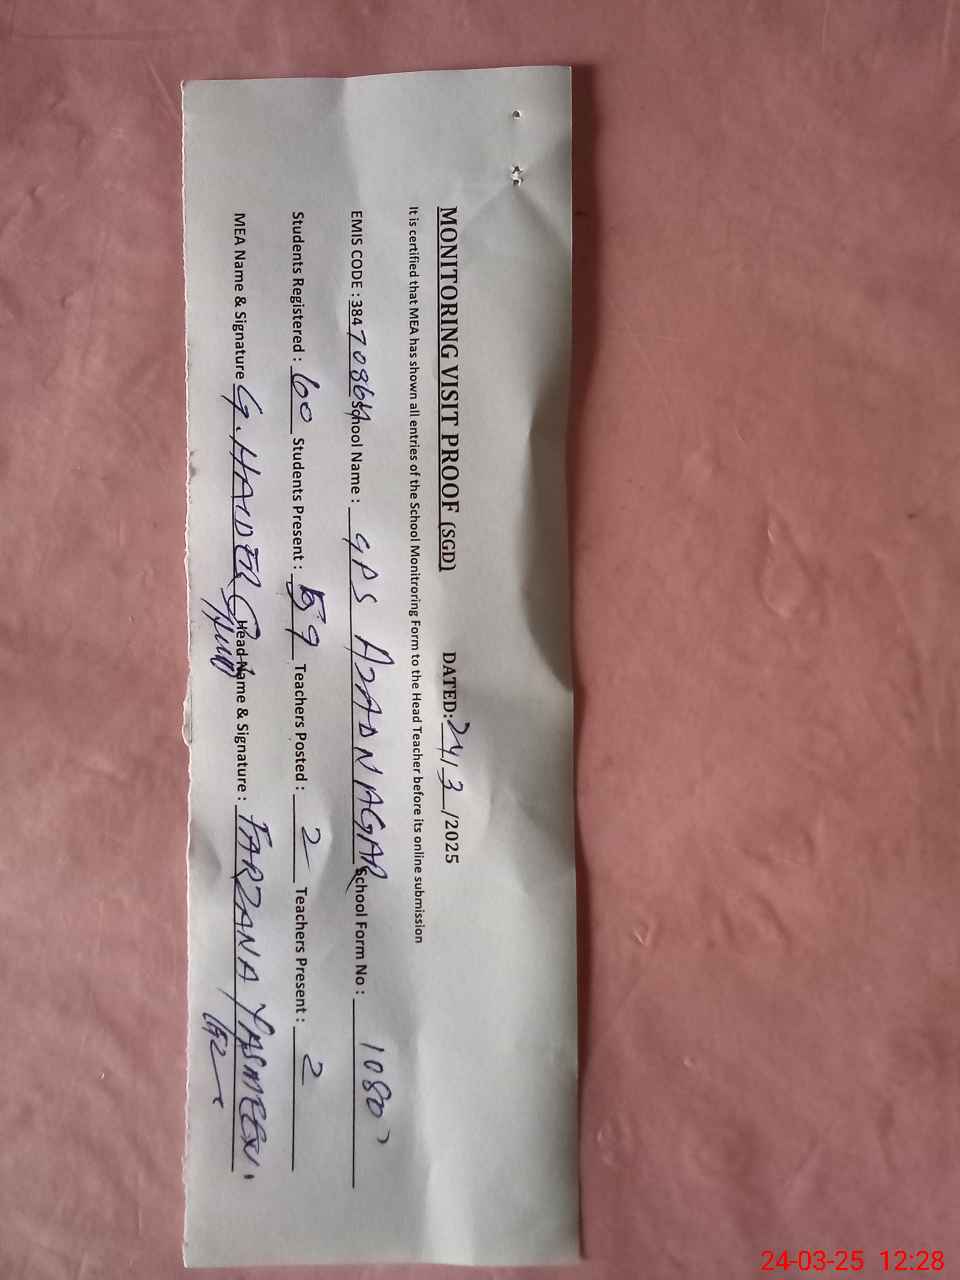 MONITORING VISIT PROOF (SGD) DATED: 24/3/2025
It is certified that MEA has shown all entries of the School Monitroring Form to the Head Teacher before its online submission
EMIS CODE : 38470864 School Name : GPS AZADNAGAR School Form No : 1080
Students Registered : 60 Students Present : 59 Teachers Posted : 2 Teachers Present : 2
MEA Name & Signature G. HAIDER Head Name & Signature : FARZANA YASMEEN.
24-03-25 12:28